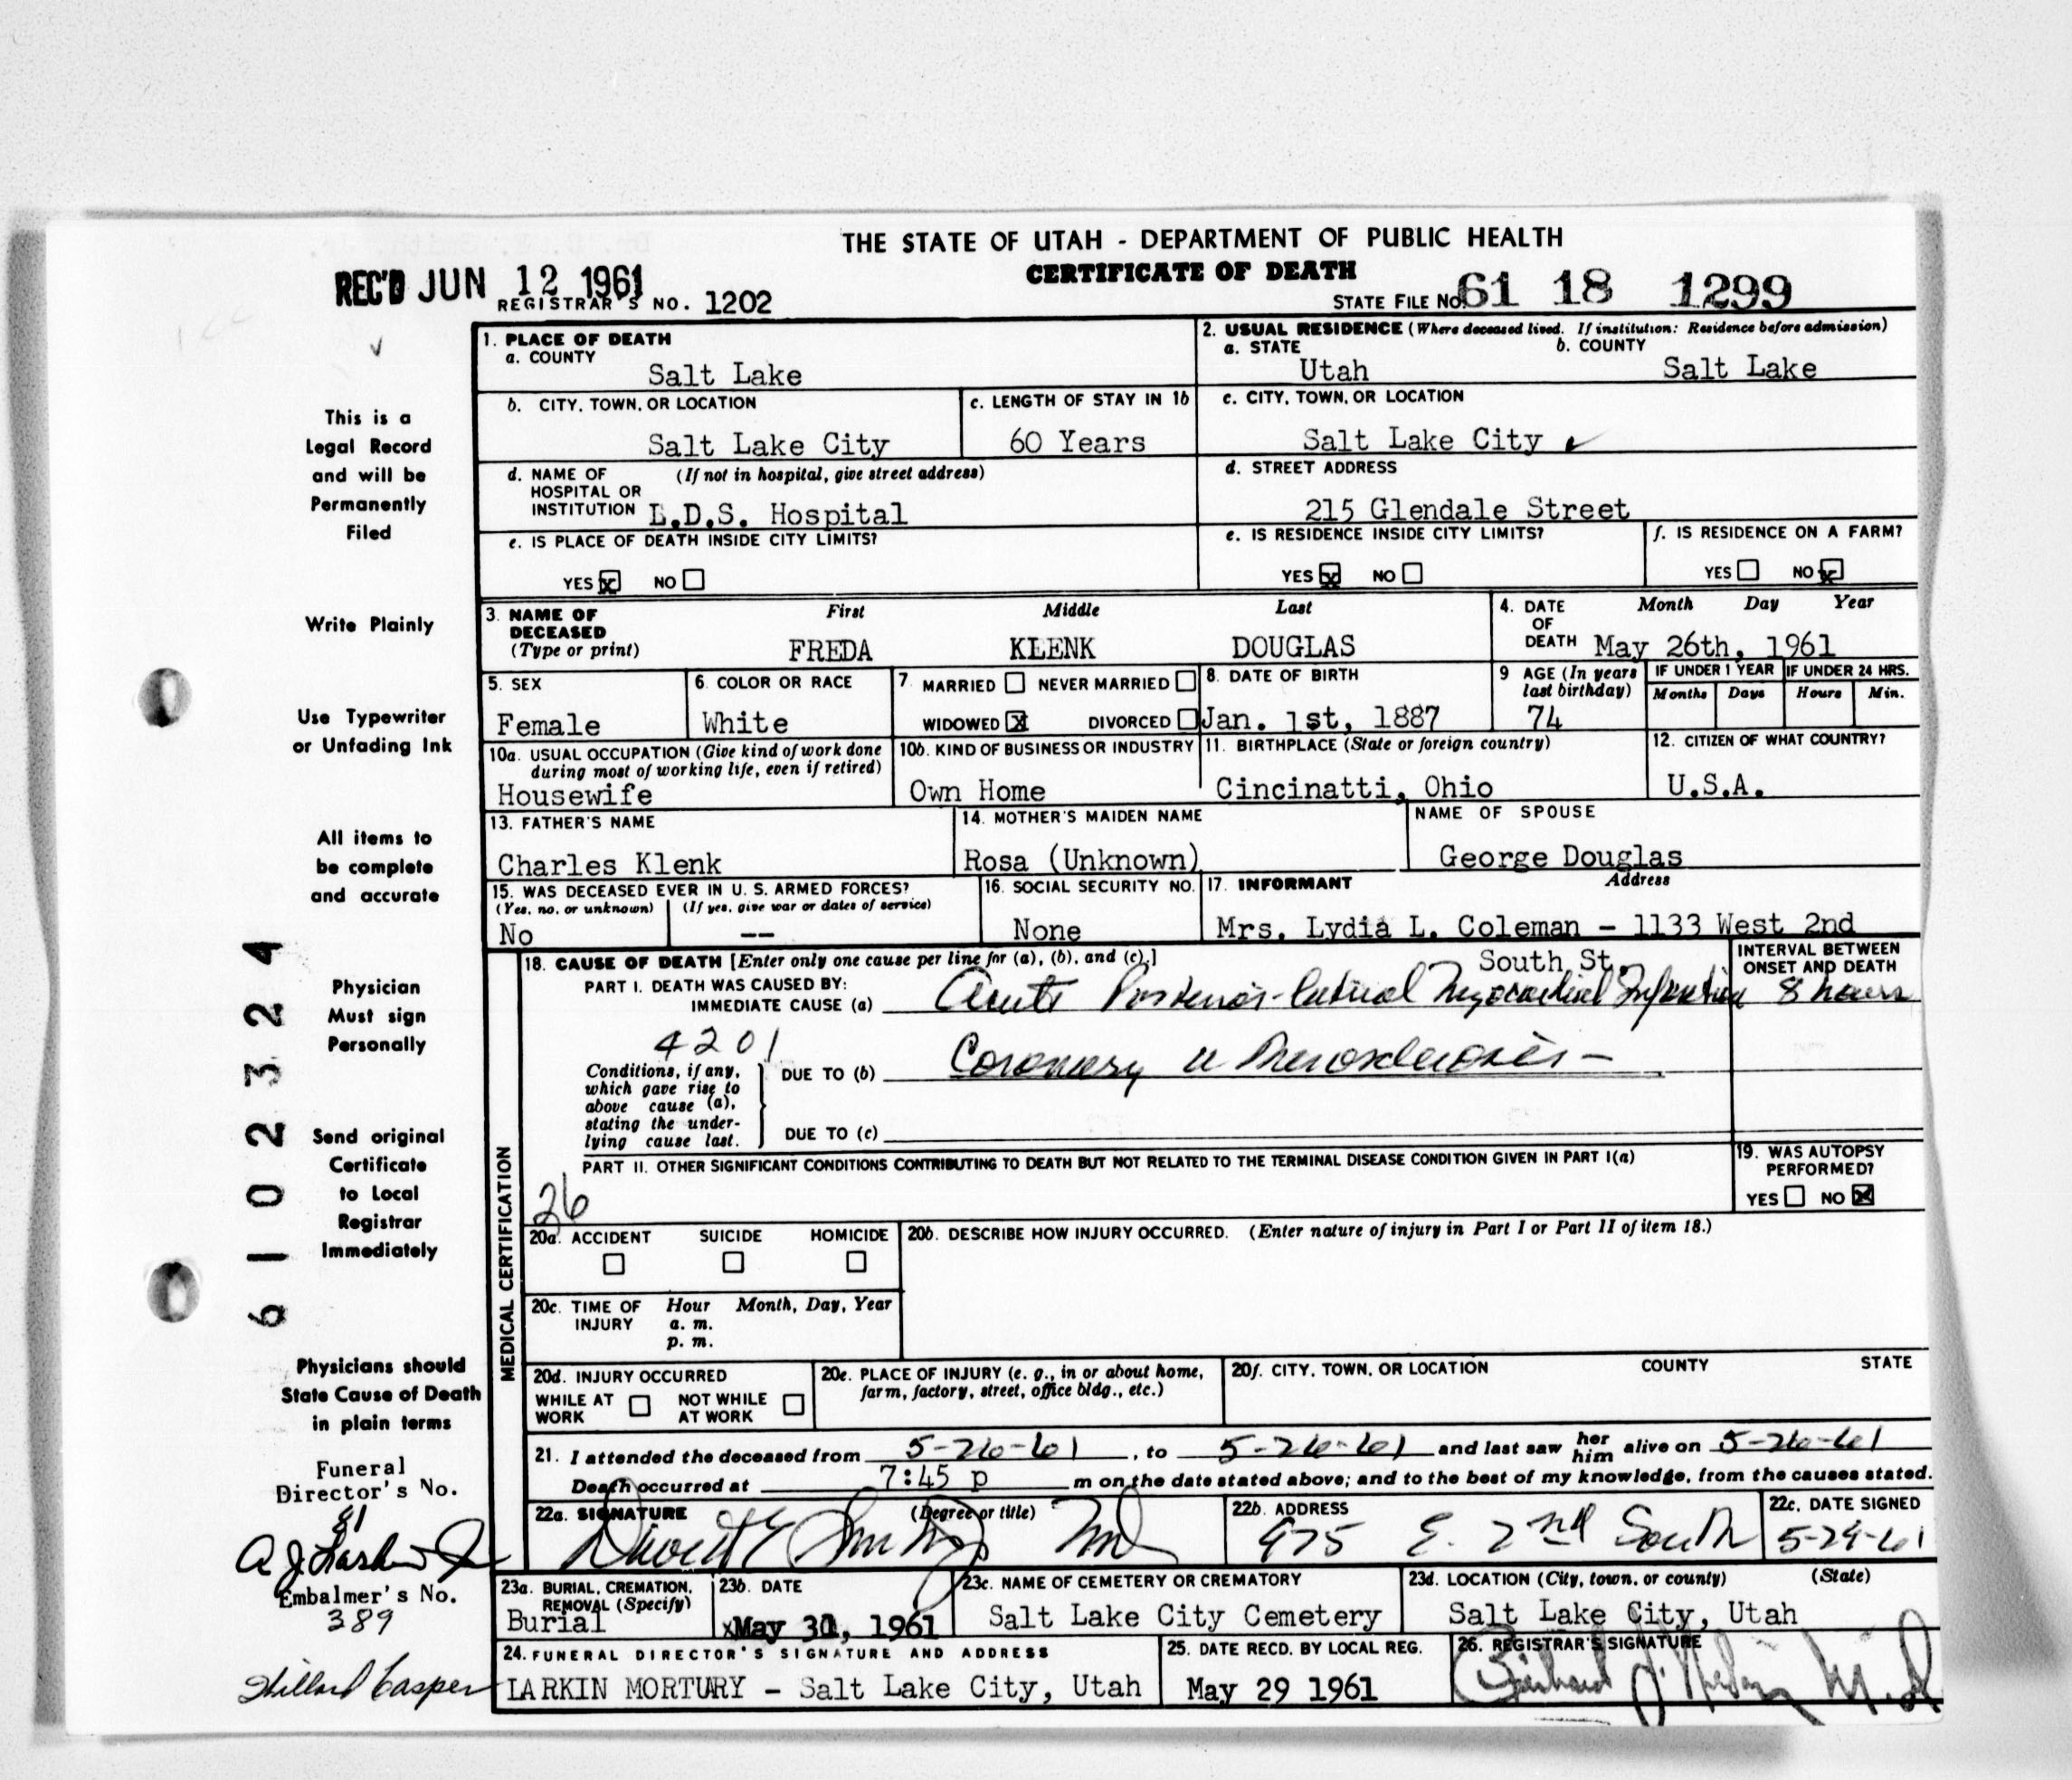 THE STATE OF UTAH - DEPARTMENT OF PUBLIC HEALTH
CERTIFICATE OF DEATH
REC'D JUN 12 1961
REGISTRAR'S NO. 1202
STATE FILE NO. 61 18 1299
1. PLACE OF DEATH
a. COUNTY
Salt Lake
2. USUAL RESIDENCE (Where deceased lived. If institution: Residence before admission)
a. STATE b. COUNTY
Utah Salt Lake
b. CITY, TOWN, OR LOCATION
Salt Lake City
c. LENGTH OF STAY IN 1b
60 Years
c. CITY, TOWN, OR LOCATION
Salt Lake City
d. NAME OF (If not in hospital, give street address)
HOSPITAL OR
INSTITUTION L.D.S. Hospital
d. STREET ADDRESS
215 Glendale Street
e. IS PLACE OF DEATH INSIDE CITY LIMITS?
YES x NO
e. IS RESIDENCE INSIDE CITY LIMITS?
YES x NO
f. IS RESIDENCE ON A FARM?
YES NO x
3. NAME OF First Middle Last
DECEASED
(Type or print) FREDA KLENK DOUGLAS
4. DATE Month Day Year
OF
DEATH May 26th, 1961
5. SEX
Female
6. COLOR OR RACE
White
7. MARRIED NEVER MARRIED
WIDOWED x DIVORCED
8. DATE OF BIRTH
Jan. 1st, 1887
9 AGE (In years
last birthday)
74
IF UNDER 1 YEAR
Months Days
IF UNDER 24 HRS.
Hours Min.
10a. USUAL OCCUPATION (Give kind of work done
during most of working life, even if retired)
Housewife
10b. KIND OF BUSINESS OR INDUSTRY
Own Home
11. BIRTHPLACE (State or foreign country)
Cincinatti, Ohio
12. CITIZEN OF WHAT COUNTRY?
U.S.A.
13. FATHER'S NAME
Charles Klenk
14. MOTHER'S MAIDEN NAME
Rosa (Unknown)
NAME OF SPOUSE
George Douglas
15. WAS DECEASED EVER IN U. S. ARMED FORCES?
(Yes, no, or unknown) (If yes, give war or dates of service)
No --
16. SOCIAL SECURITY NO.
None
17. INFORMANT Address
Mrs. Lydia L. Coleman - 1133 West 2nd
South St.
MEDICAL CERTIFICATION
18. CAUSE OF DEATH [Enter only one cause per line for (a), (b), and (c).]
PART I. DEATH WAS CAUSED BY:
IMMEDIATE CAUSE (a) Acute Posterior-lateral Myocardial Infarction
INTERVAL BETWEEN
ONSET AND DEATH
8 hours
4201
Conditions, if any,
which gave rise to
above cause (a),
stating the under-
lying cause last.
DUE TO (b) Coronary
DUE TO (c)
PART II. OTHER SIGNIFICANT CONDITIONS CONTRIBUTING TO DEATH BUT NOT RELATED TO THE TERMINAL DISEASE CONDITION GIVEN IN PART I(a)
26
19. WAS AUTOPSY
PERFORMED?
YES NO x
20a. ACCIDENT SUICIDE HOMICIDE
20b. DESCRIBE HOW INJURY OCCURRED. (Enter nature of injury in Part I or Part II of item 18.)
20c. TIME OF Hour Month, Day, Year
INJURY a. m.
p. m.
20d. INJURY OCCURRED
WHILE AT WORK NOT WHILE AT WORK
20e. PLACE OF INJURY (e. g., in or about home,
farm, factory, street, office bldg., etc.)
20f. CITY, TOWN, OR LOCATION COUNTY STATE
21. I attended the deceased from 5-26-61, to 5-26-61 and last saw her him alive on 5-26-61
Death occurred at 7:45 p m on the date stated above; and to the best of my knowledge, from the causes stated.
22a. SIGNATURE (Degree or title)
MD
22b. ADDRESS
975 E. 2nd South
22c. DATE SIGNED
5-29-61
23a. BURIAL, CREMATION,
REMOVAL (Specify)
Burial
23b. DATE
xMay 30, 1961
23c. NAME OF CEMETERY OR CREMATORY
Salt Lake City Cemetery
23d. LOCATION (City, town, or county) (State)
Salt Lake City, Utah
24. FUNERAL DIRECTOR'S SIGNATURE AND ADDRESS
LARKIN MORTURY - Salt Lake City, Utah
25. DATE RECD. BY LOCAL REG.
May 29 1961
26. REGISTRAR'S SIGNATURE
This is a
Legal Record
and will be
Permanently
Filed
Write Plainly
Use Typewriter
or Unfading Ink
All items to
be complete
and accurate
Physician
Must sign
Personally
Send original
Certificate
to Local
Registrar
Immediately
Physicians should
State Cause of Death
in plain terms
6102324
Funeral
Director's No.
81
A J Larkin Jr
Embalmer's No.
389
Willard Casper